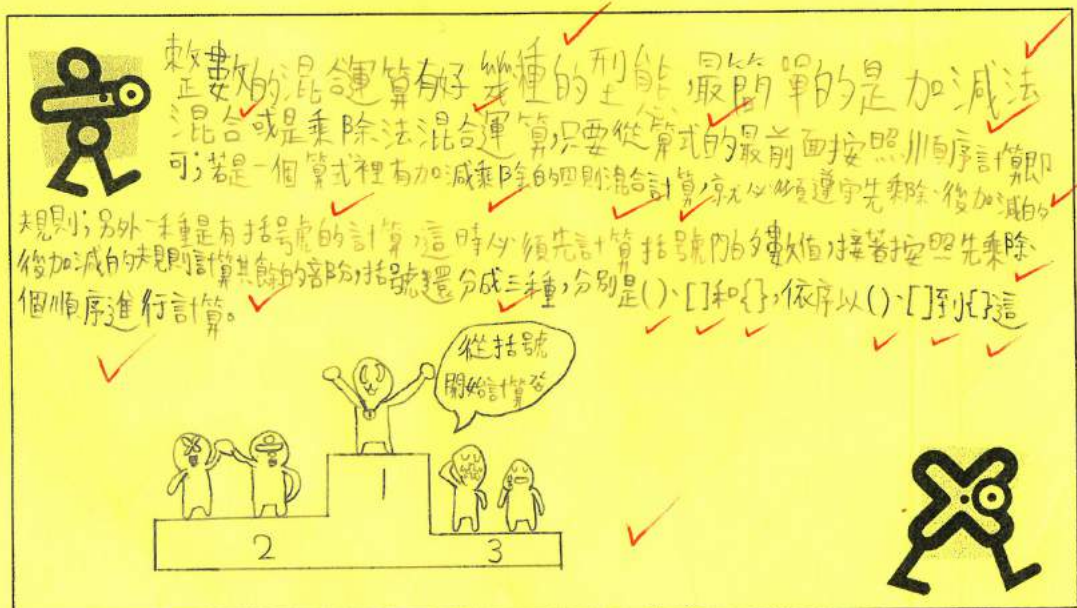 整數的混合運算有好幾種的型能,最簡單的是加減法
混合或是乘除法混合運算,只要從算式的最前面按照順序計算即
可;若是一個算式裡有加減乘除的四則混合計算,就必須遵守先乘除、後加減的
規則;另外一種是有括号虎的計算,這時必須先計算括號內的數值,接著按照先乘除、
後加減的規則計算其餘的部份,括號還分成三種,分別是()、[]和{},依序以()、[]到{}這
個順序進行計算。
從括號
開始計算
1
2
3